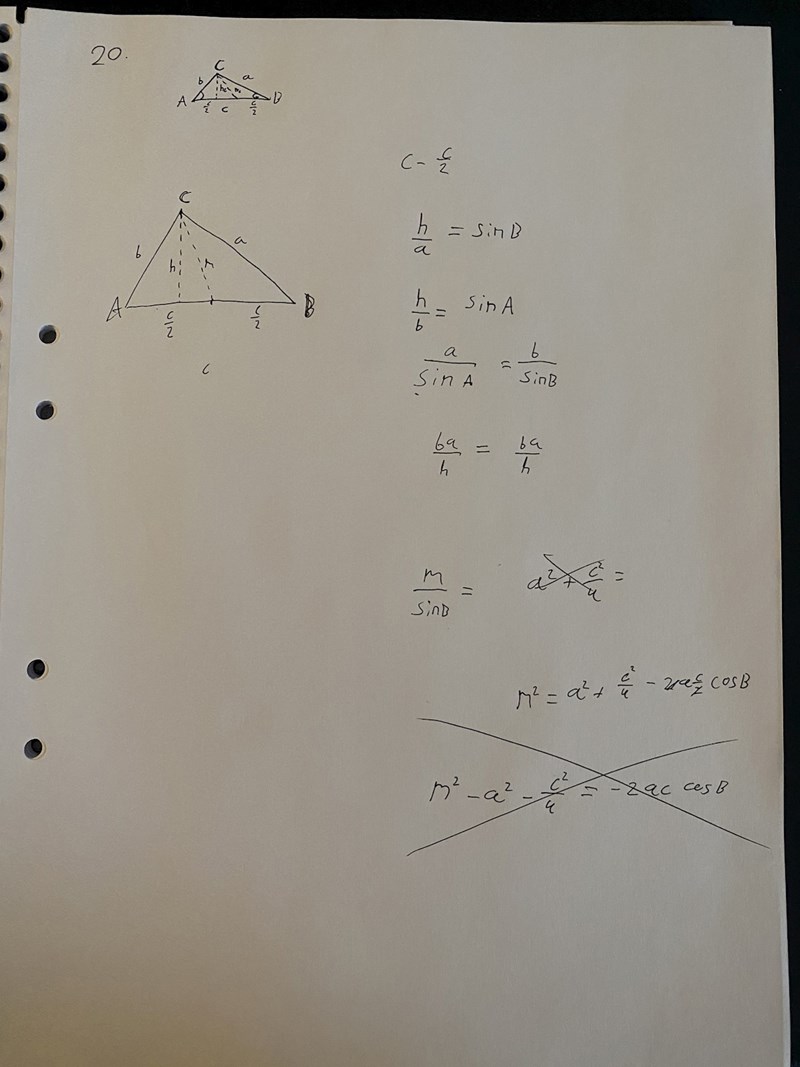 20.
C
b a
h m
A B
c/2 c c/2
C
b a
h m
A B
c/2 c/2
c
c - c/2
h/a = sin B
h/b = sin A
a/sin A = b/sin B
ba/h = ba/h
m/sin B = a² + c²/4 =
m² = a² + c²/4 - 2a c/2 cos B
m² - a² - c²/4 = -2ac cos B